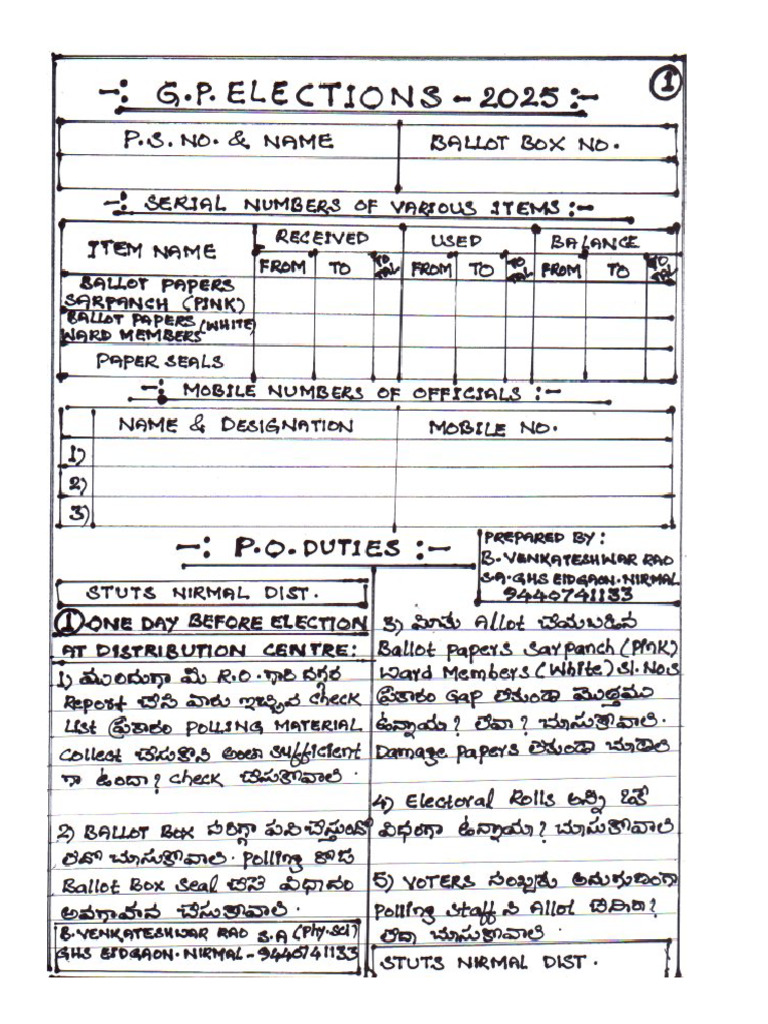 ①
-: G.P. ELECTIONS - 2025 :-
P.S. NO. & NAME
BALLOT BOX NO.
-: SERIAL NUMBERS OF VARIOUS ITEMS :-
ITEM NAME
RECEIVED
USED
BALANCE
FROM TO TOTAL FROM TO TOTAL FROM TO TOTAL
BALLOT PAPERS
SARPANCH (PINK)
BALLOT PAPERS (WHITE)
WARD MEMBERS
PAPER SEALS
-: MOBILE NUMBERS OF OFFICIALS :-
NAME & DESIGNATION
MOBILE NO.
1)
2)
3)
-: P.O. DUTIES :-
PREPARED BY:
B. VENKATESHWAR RAO
S.A-GHS EIDGAON. NIRMAL
9440741133
STUTS NIRMAL DIST.
① ONE DAY BEFORE ELECTION
AT DISTRIBUTION CENTRE:
1) ముందుగా మీ R.O. గారి దగ్గర
Report చేసి వారు ఇచ్చిన check
List ప్రకారం POLLING MATERIAL
collect చేసుకొని అంతా sufficient
గా ఉందా? check చేసుకోవాలి.
2) BALLOT BOX సరిగ్గా పనిచేస్తుందో
లేదో చూసుకోవాలి. Polling రోజు
Ballot Box Seal చేసే విధానం
అవగాహన చేసుకోవాలి.
B. VENKATESHWAR RAO S.A (Phy.Sci)
GHS EIDGAON. NIRMAL - 9440741133
3) మీకు Allot చేయబడిన
Ballot papers Sarpanch (Pink)
Ward Members (White) Sl. Nos
ప్రకారం Gap లేకుండా మొత్తము
ఉన్నాయా? లేవా? చూసుకోవాలి.
Damage Papers లేకుండా చూడాలి
4) Electoral Rolls అన్ని ఒకే
విధంగా ఉన్నాయా? చూసుకోవాలి
5) VOTERS సంఖ్యకు అనుగుణంగా
Polling Staff ని Allot చేసిరా?
లేదా చూసుకోవాలి.
STUTS NIRMAL DIST.